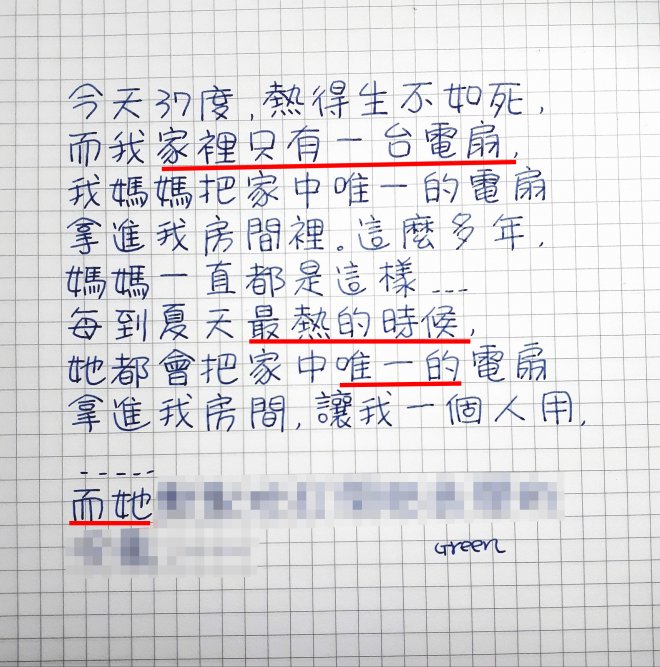 今天37度,熱得生不如死,
而我家裡只有一台電扇,
我媽媽把家中唯一的電扇
拿進我房間裡。這麼多年,
媽媽一直都是這樣---
每到夏天最熱的時候,
她都會把家中唯一的電扇
拿進我房間,讓我一個人用,
-----
而她
Green